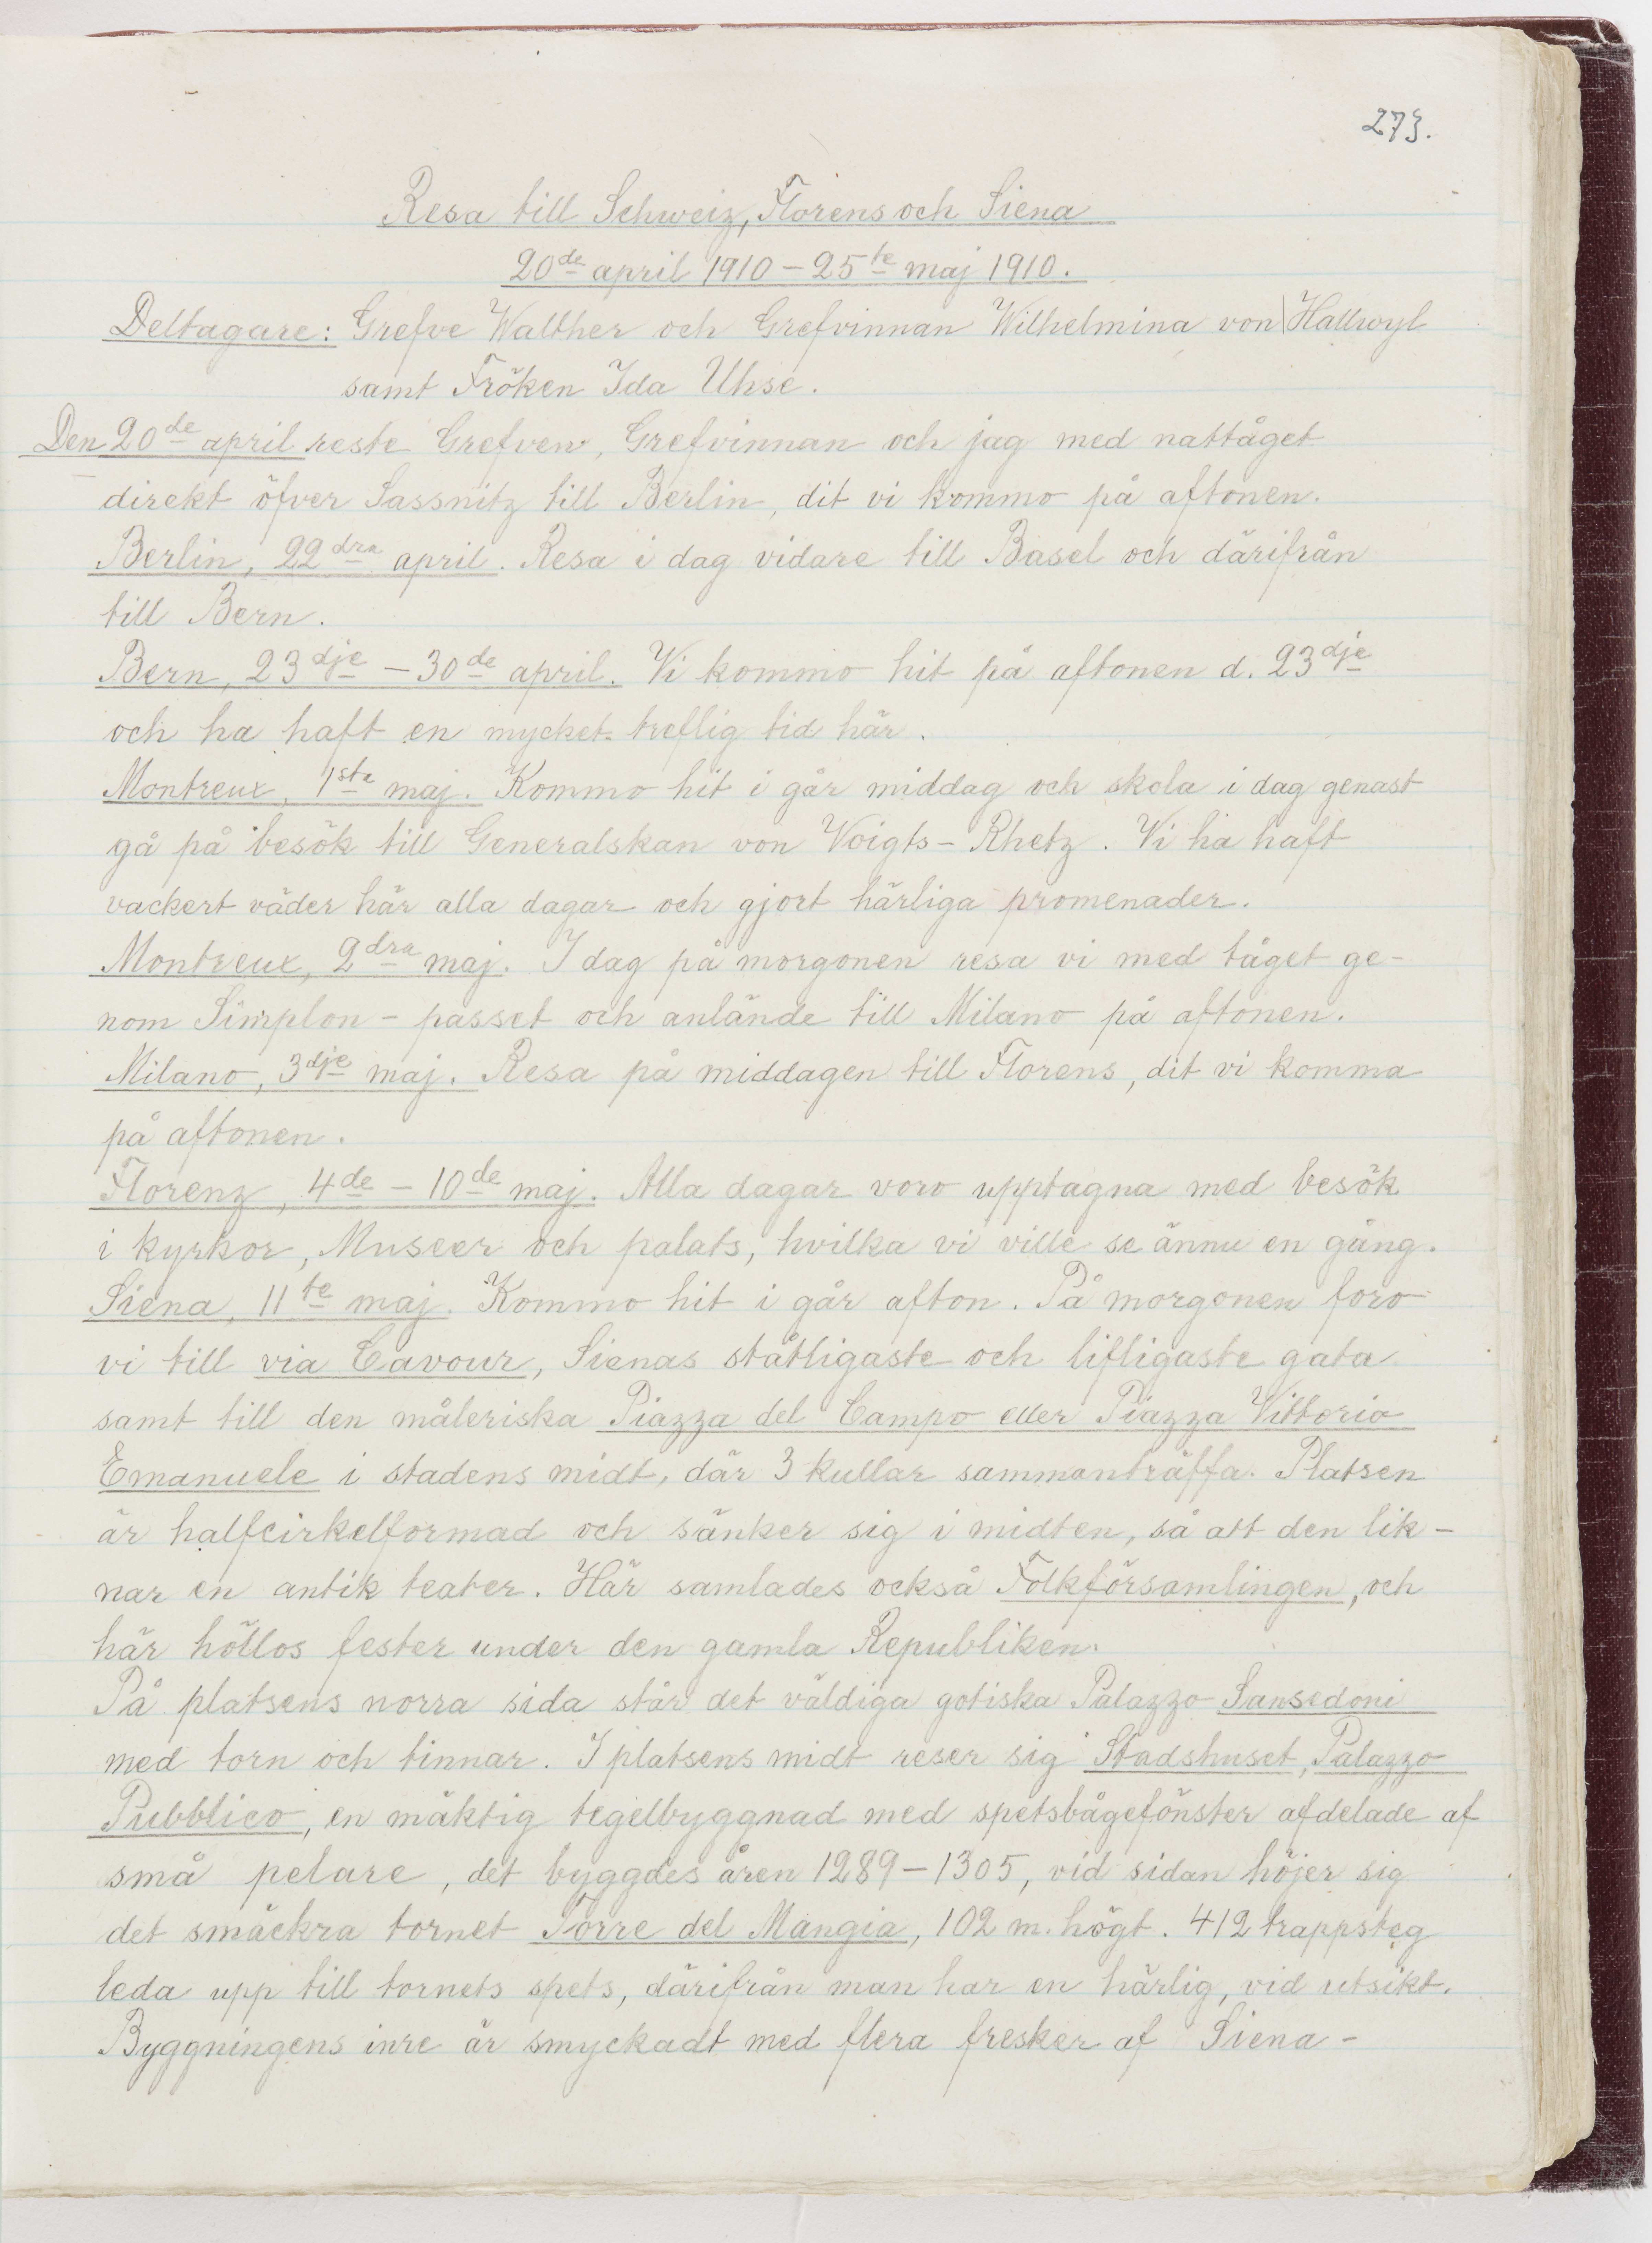 273.
Resa till Schweiz, Florens och Siena
20de april 1910 – 25te maj 1910.
Deltagare: Grefve Walther och Grefvinnan Wilhelmina von Hallwyl
samt Fröken Ida Uhse.
Den 20de april reste Grefven, Grefvinnan och jag med nattåget
direkt öfver Sassnitz till Berlin, dit vi kommo på aftonen.
Berlin, 22dra april. Resa i dag vidare till Basel och därifrån
till Bern.
Bern, 23dje – 30de april. Vi kommo hit på aftonen d. 23dje
och ha haft en mycket treflig tid här.
Montreux, 1sta maj. Kommo hit i går middag och skola i dag genast
gå på besök till Generalskan von Voigts-Rhetz. Vi ha haft
vackert väder här alla dagar och gjort härliga promenader.
Montreux, 2dra maj. I dag på morgonen resa vi med tåget ge-
nom Simplon-passet och anlände till Milano på aftonen.
Milano, 3dje maj. Resa på middagen till Florens, dit vi komma
på aftonen.
Florenz, 4de – 10de maj. Alla dagar voro upptagna med besök
i kyrkor, Museer och palats, hvilka vi ville se ännu en gång.
Siena, 11te maj. Kommo hit i går afton. På morgonen foro
vi till via Cavour, Sienas ståtligaste och lifligaste gata
samt till den måleriska Piazza del Campo eller Piazza Vittorio
Emanuele i stadens midt, där 3 kullar sammanträffa. Platsen
är halfcirkelformad och sänker sig i midten, så att den lik-
nar en antik teater. Här samlades också Folkförsamlingen, och
här höllos fester under den gamla Republiken.
På platsens norra sida står det väldiga gotiska Palazzo Sansedoni
med torn och tinnar. I platsens midt reser sig Stadshuset, Palazzo
Pubblico, en mäktig tegelbyggnad med spetsbågefönster afdelade af
små pelare, det byggdes åren 1289–1305, vid sidan höjer sig
det smäckra tornet Torre del Mangia, 102 m. högt. 412 trappsteg
leda upp till tornets spets, därifrån man har en härlig, vid utsikt.
Byggningens inre är smyckadt med flera fresker af Siena-